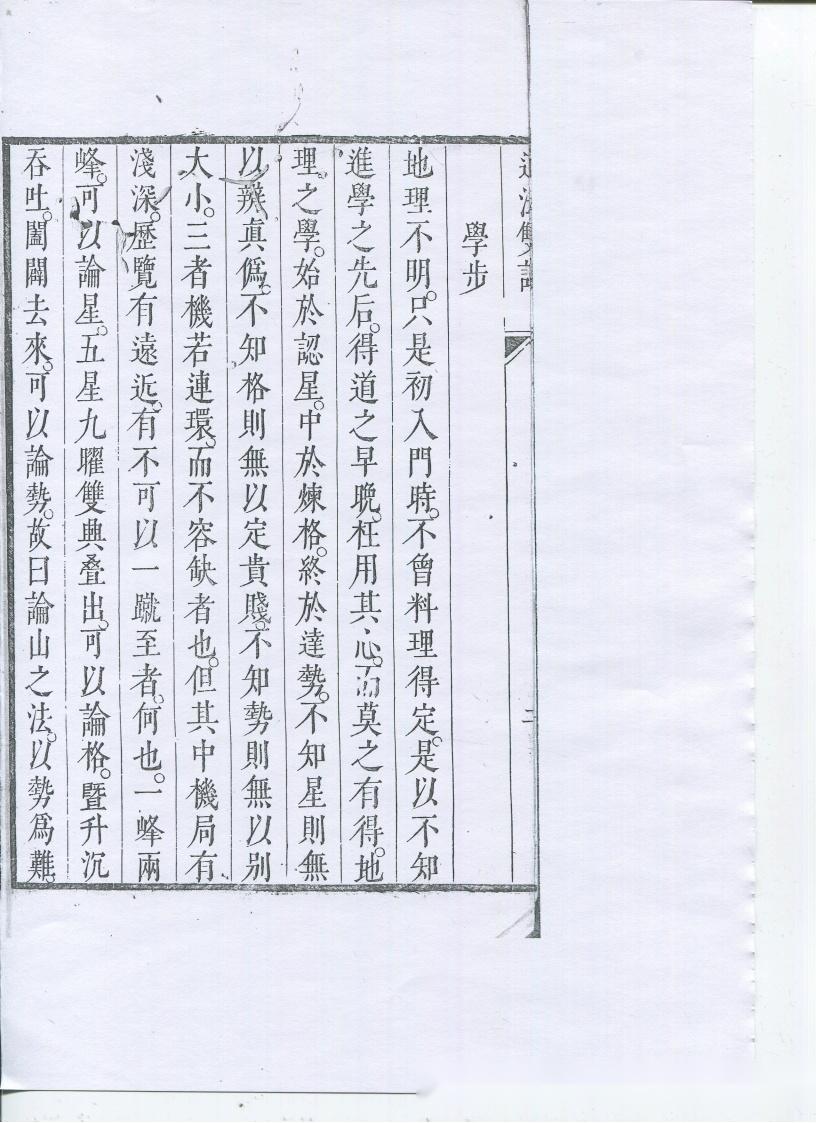 法雙
二
學步
地理不明。只是初入門時。不曾料理得定。是以不知
進學之先后。得道之早晩。枉用其心。而莫之有得。地
理之學。始於認星。中於煉格。終於達勢。不知星則無
以辨真僞。不知格則無以定貴賤。不知勢則無以别
大小。三者機若連環。而不容缺者也。但其中機局有
淺深。歷覽有遠近。有不可以一蹴至者。何也。一峰兩
峰。可以論星。五星九曜雙典叠出。可以論格。曁升沉
吞吐。闔闢去來。可以論勢。故曰論山之法。以勢爲難